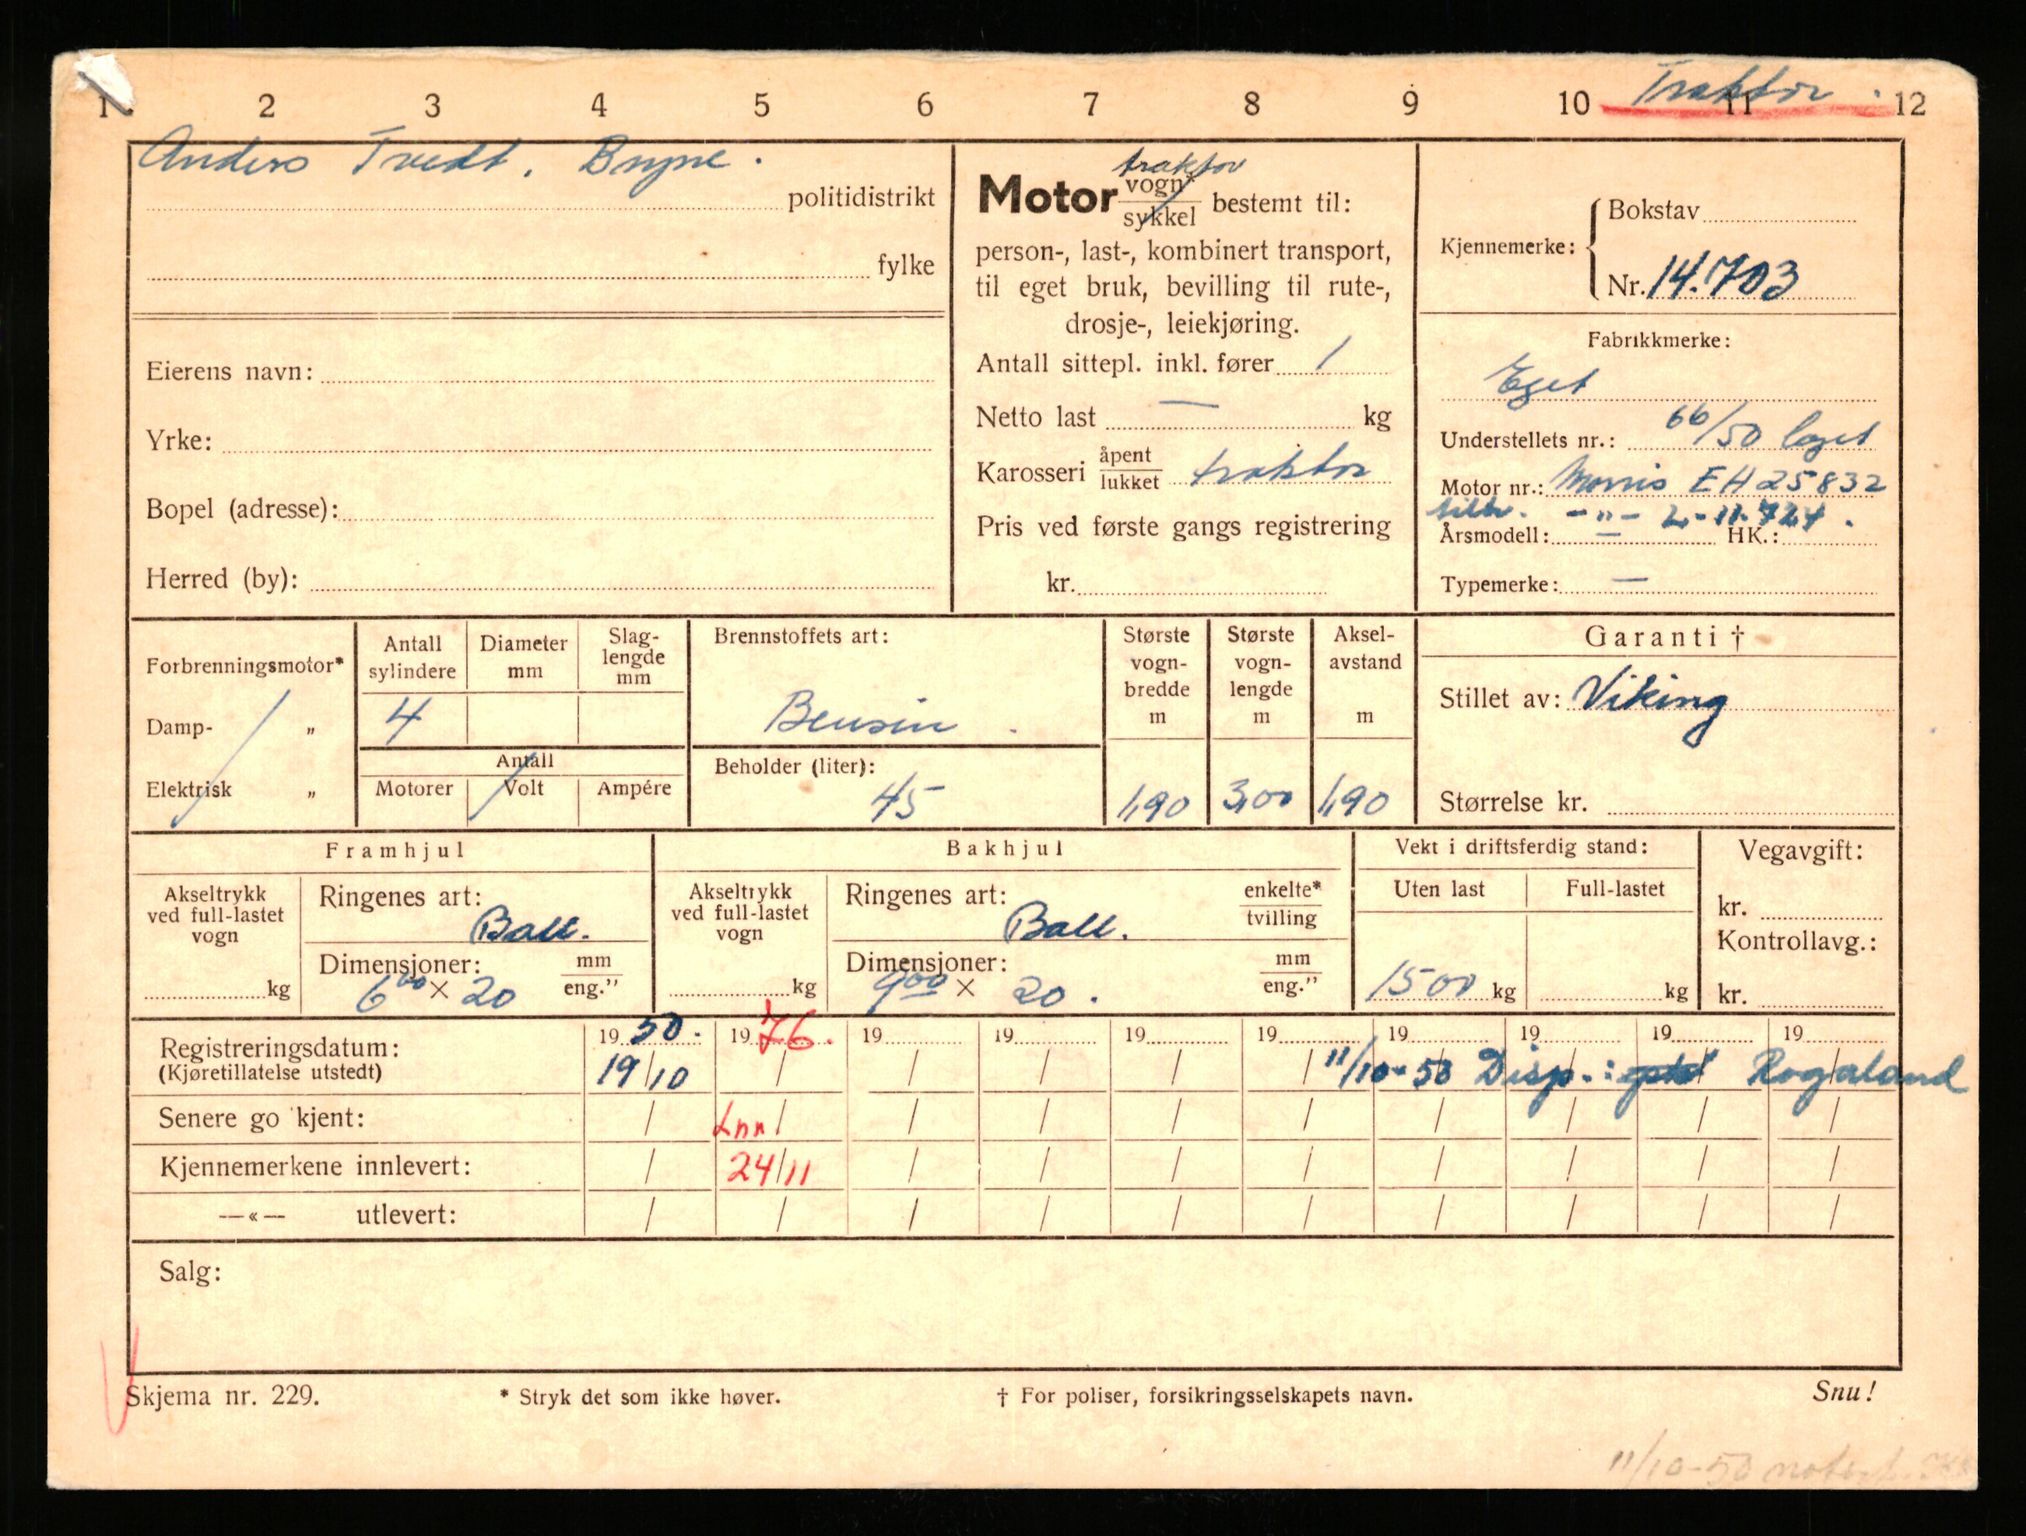 Traktor.
1 2 3 4 5 6 7 8 9 10 11 12
Anders Tvedt, Bryne.
politidistrikt
fylke
Eierens navn:
Yrke:
Bopel (adresse):
Herred (by):
traktor
Motor vogn*/sykkel bestemt til:
person-, last-, kombinert transport,
til eget bruk, bevilling til rute-,
drosje-, leiekjøring.
Antall sittepl. inkl. fører 1
Netto last — kg
Karosseri åpent/lukket traktor
Pris ved første gangs registrering
kr.
Kjennemerke: Bokstav
Nr. 14.703
Fabrikkmerke:
Eget
Understellets nr.: 66/50 laget
Motor nr.: Morris EH 25832
tilh. -"- L-11.724.
Årsmodell: — HK.:
Typemerke: —
Forbrenningsmotor*
Damp- "
Elektrisk "
Antall sylindere
4
Diameter mm
Slag-lengde mm
Antall
Motorer Volt Ampére
Brennstoffets art:
Bensin.
Beholder (liter):
45
Største vogn-bredde m
1,90
Største vogn-lengde m
3,00
Aksel-avstand m
1,90
Garanti †
Stillet av: Viking
Størrelse kr.
Framhjul
Akseltrykk ved full-lastet vogn
kg
Ringenes art:
Ball.
Dimensjoner: mm/eng."
6⁰⁰ × 20
Bakhjul
Akseltrykk ved full-lastet vogn
kg
Ringenes art: enkelte*/tvilling
Ball.
Dimensjoner: mm/eng."
9⁰⁰ × 20.
Vekt i driftsferdig stand:
Uten last Full-lastet
1500 kg kg
Vegavgift:
kr.
Kontrollavg.:
kr.
19 50. 19 76. 19 19 19 19 19 19 19 19
Registreringsdatum:
(Kjøretillatelse utstedt)
19/10 / / / / / 11/10-50 Disp.: Rogaland
Senere go kjent: / Inn / / / / / / / / /
Kjennemerkene innlevert: / 24/11 / / / / / / / /
—«— utlevert: / / / / / / / / / /
Salg:
Skjema nr. 229.
* Stryk det som ikke høver.
† For poliser, forsikringsselskapets navn.
Snu!
11/10-50 notert.